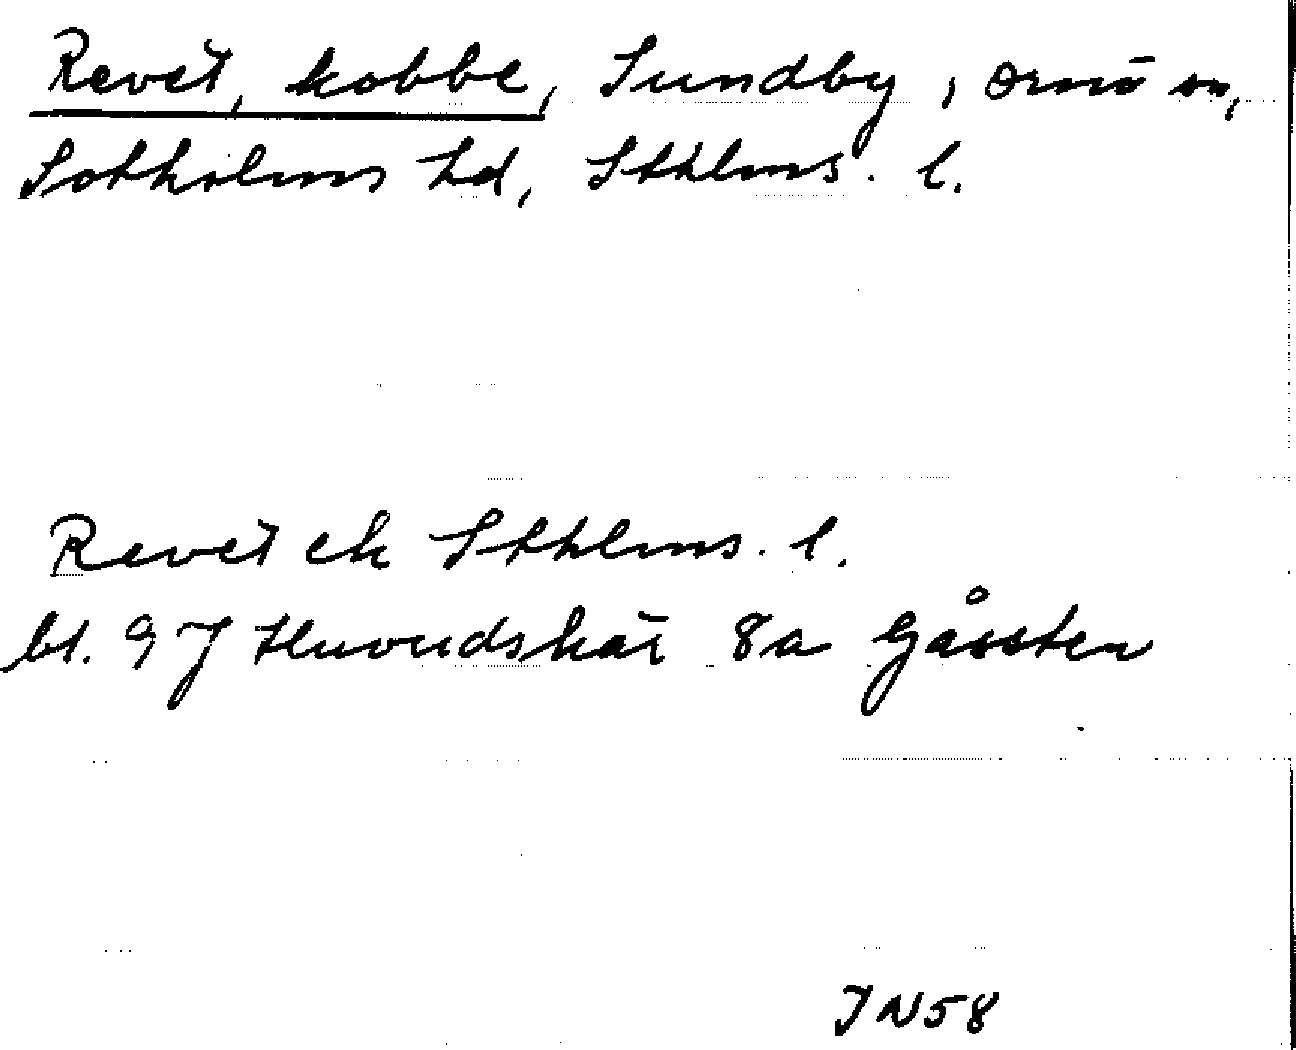 Revet, kobbe, Sundby, Ornö sn,
Sotholms hd, Sthlms. l.
Revet ek Sthlms. l.
bl. 9J Huvudskär 8a Gåssten
JN58